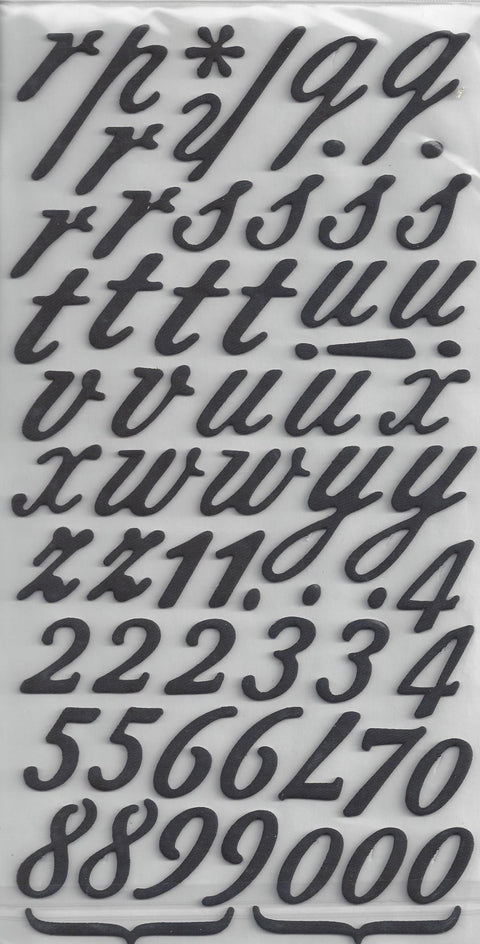 r p * / q q
r ? . .
r r s s s s
t t t t u u
! .
v v u u x
x w w y y
z z 1 1 . . . 4
2 2 2 3 3 4
5 5 6 6 7 7 0
8 8 9 9 0 0 0
} }